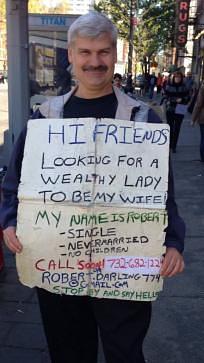 TITAN
DRUGS
HI FRIENDS
LOOKING FOR A
WEALTHY LADY
TO BE MY WIFE!
MY NAME IS ROBERT
- SINGLE
- NEVER MARRIED
- NO CHILDREN
CALL Soon! 732-682-1224
ROBERT.DARLING774
@GMAIL.COM
STOP BY AND SAY HELLO